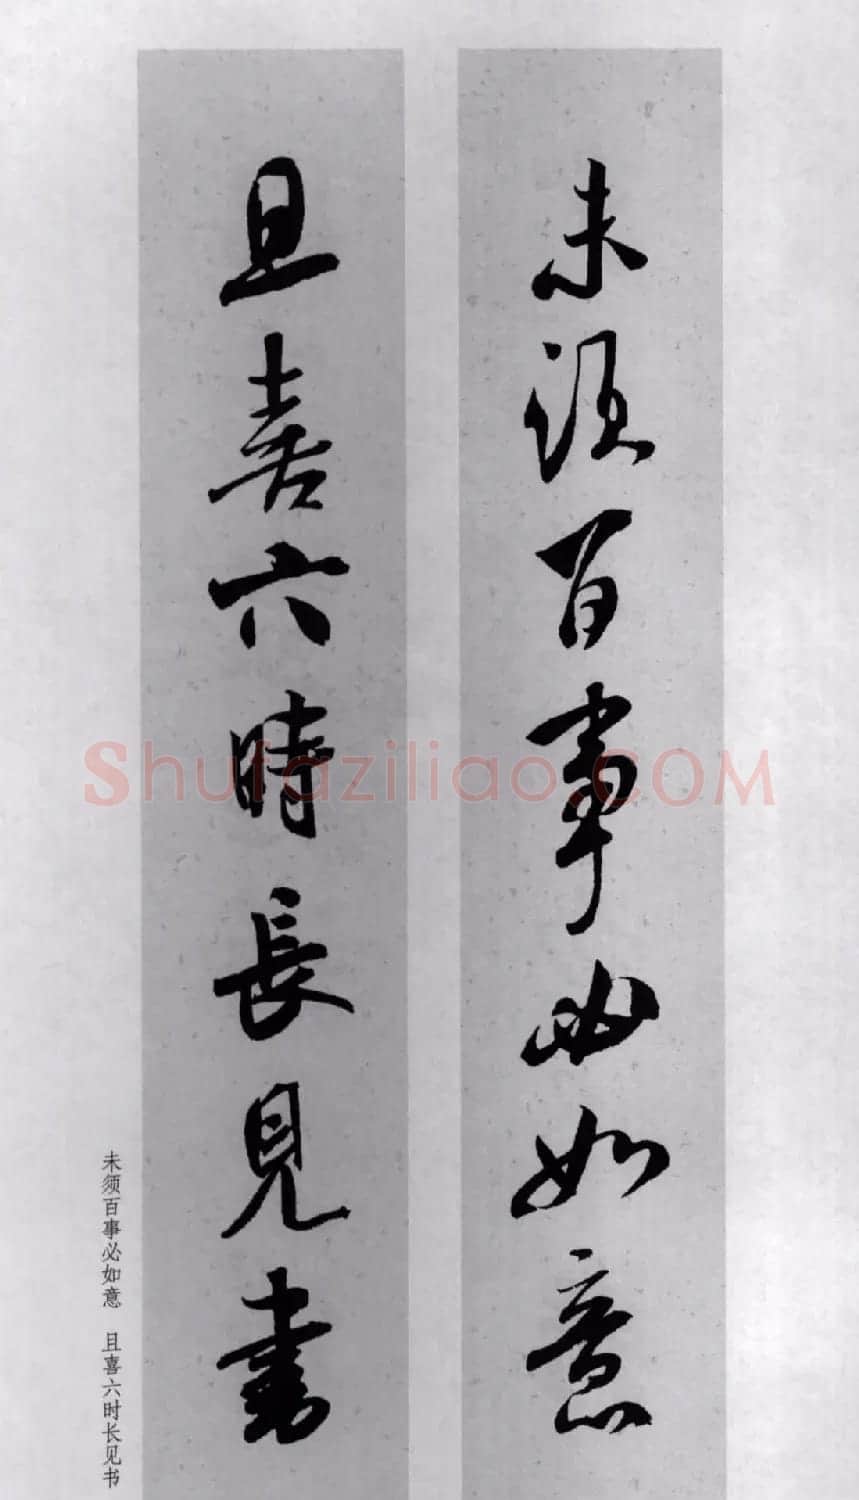 未須百事必如意
且喜六時長見書
未须百事必如意 且喜六时长见书
Shufaziliao.COM